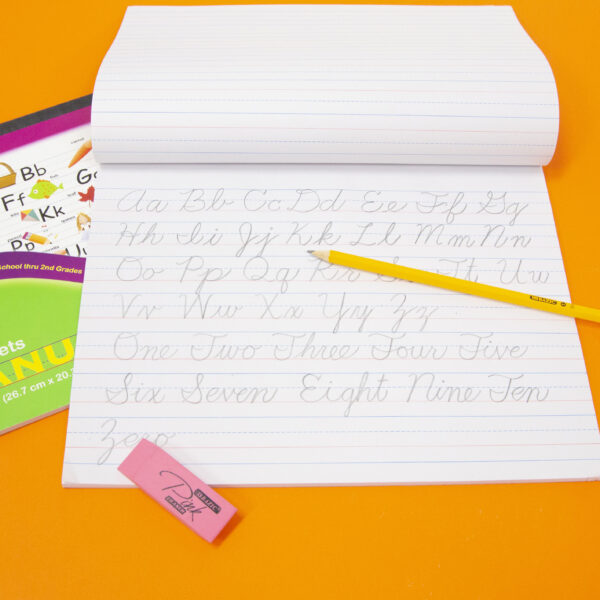 Aa Bb Cc Dd Ee Ff Gg
Hh Ii Jj Kk Ll Mm Nn
Oo Pp Qq Tt Uu
Vv Ww Xx Yy Zz
One Two Three Four Five
Six Seven Eight Nine Ten
Zero
Bb
Ff
Kk
Pp
School thru 2nd Grades
(26.7 cm x 20.
BAZIC
Pink
BAZIC
ERASER